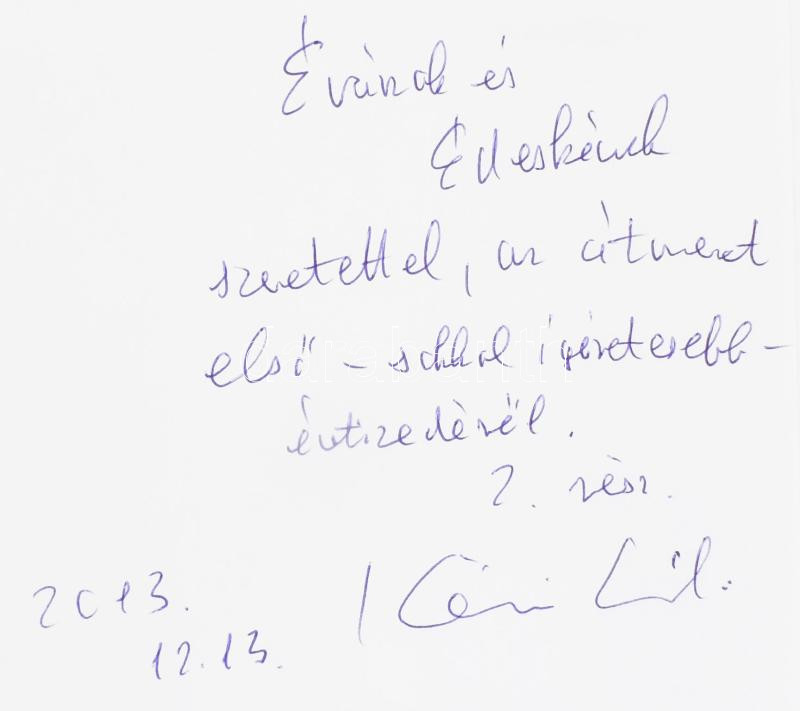 Évának és
Edieskének
szeretettel, az átmenet
első – sokkal ígéretesebb –
évtizedéről.
2. rész.
2013.
12.13.